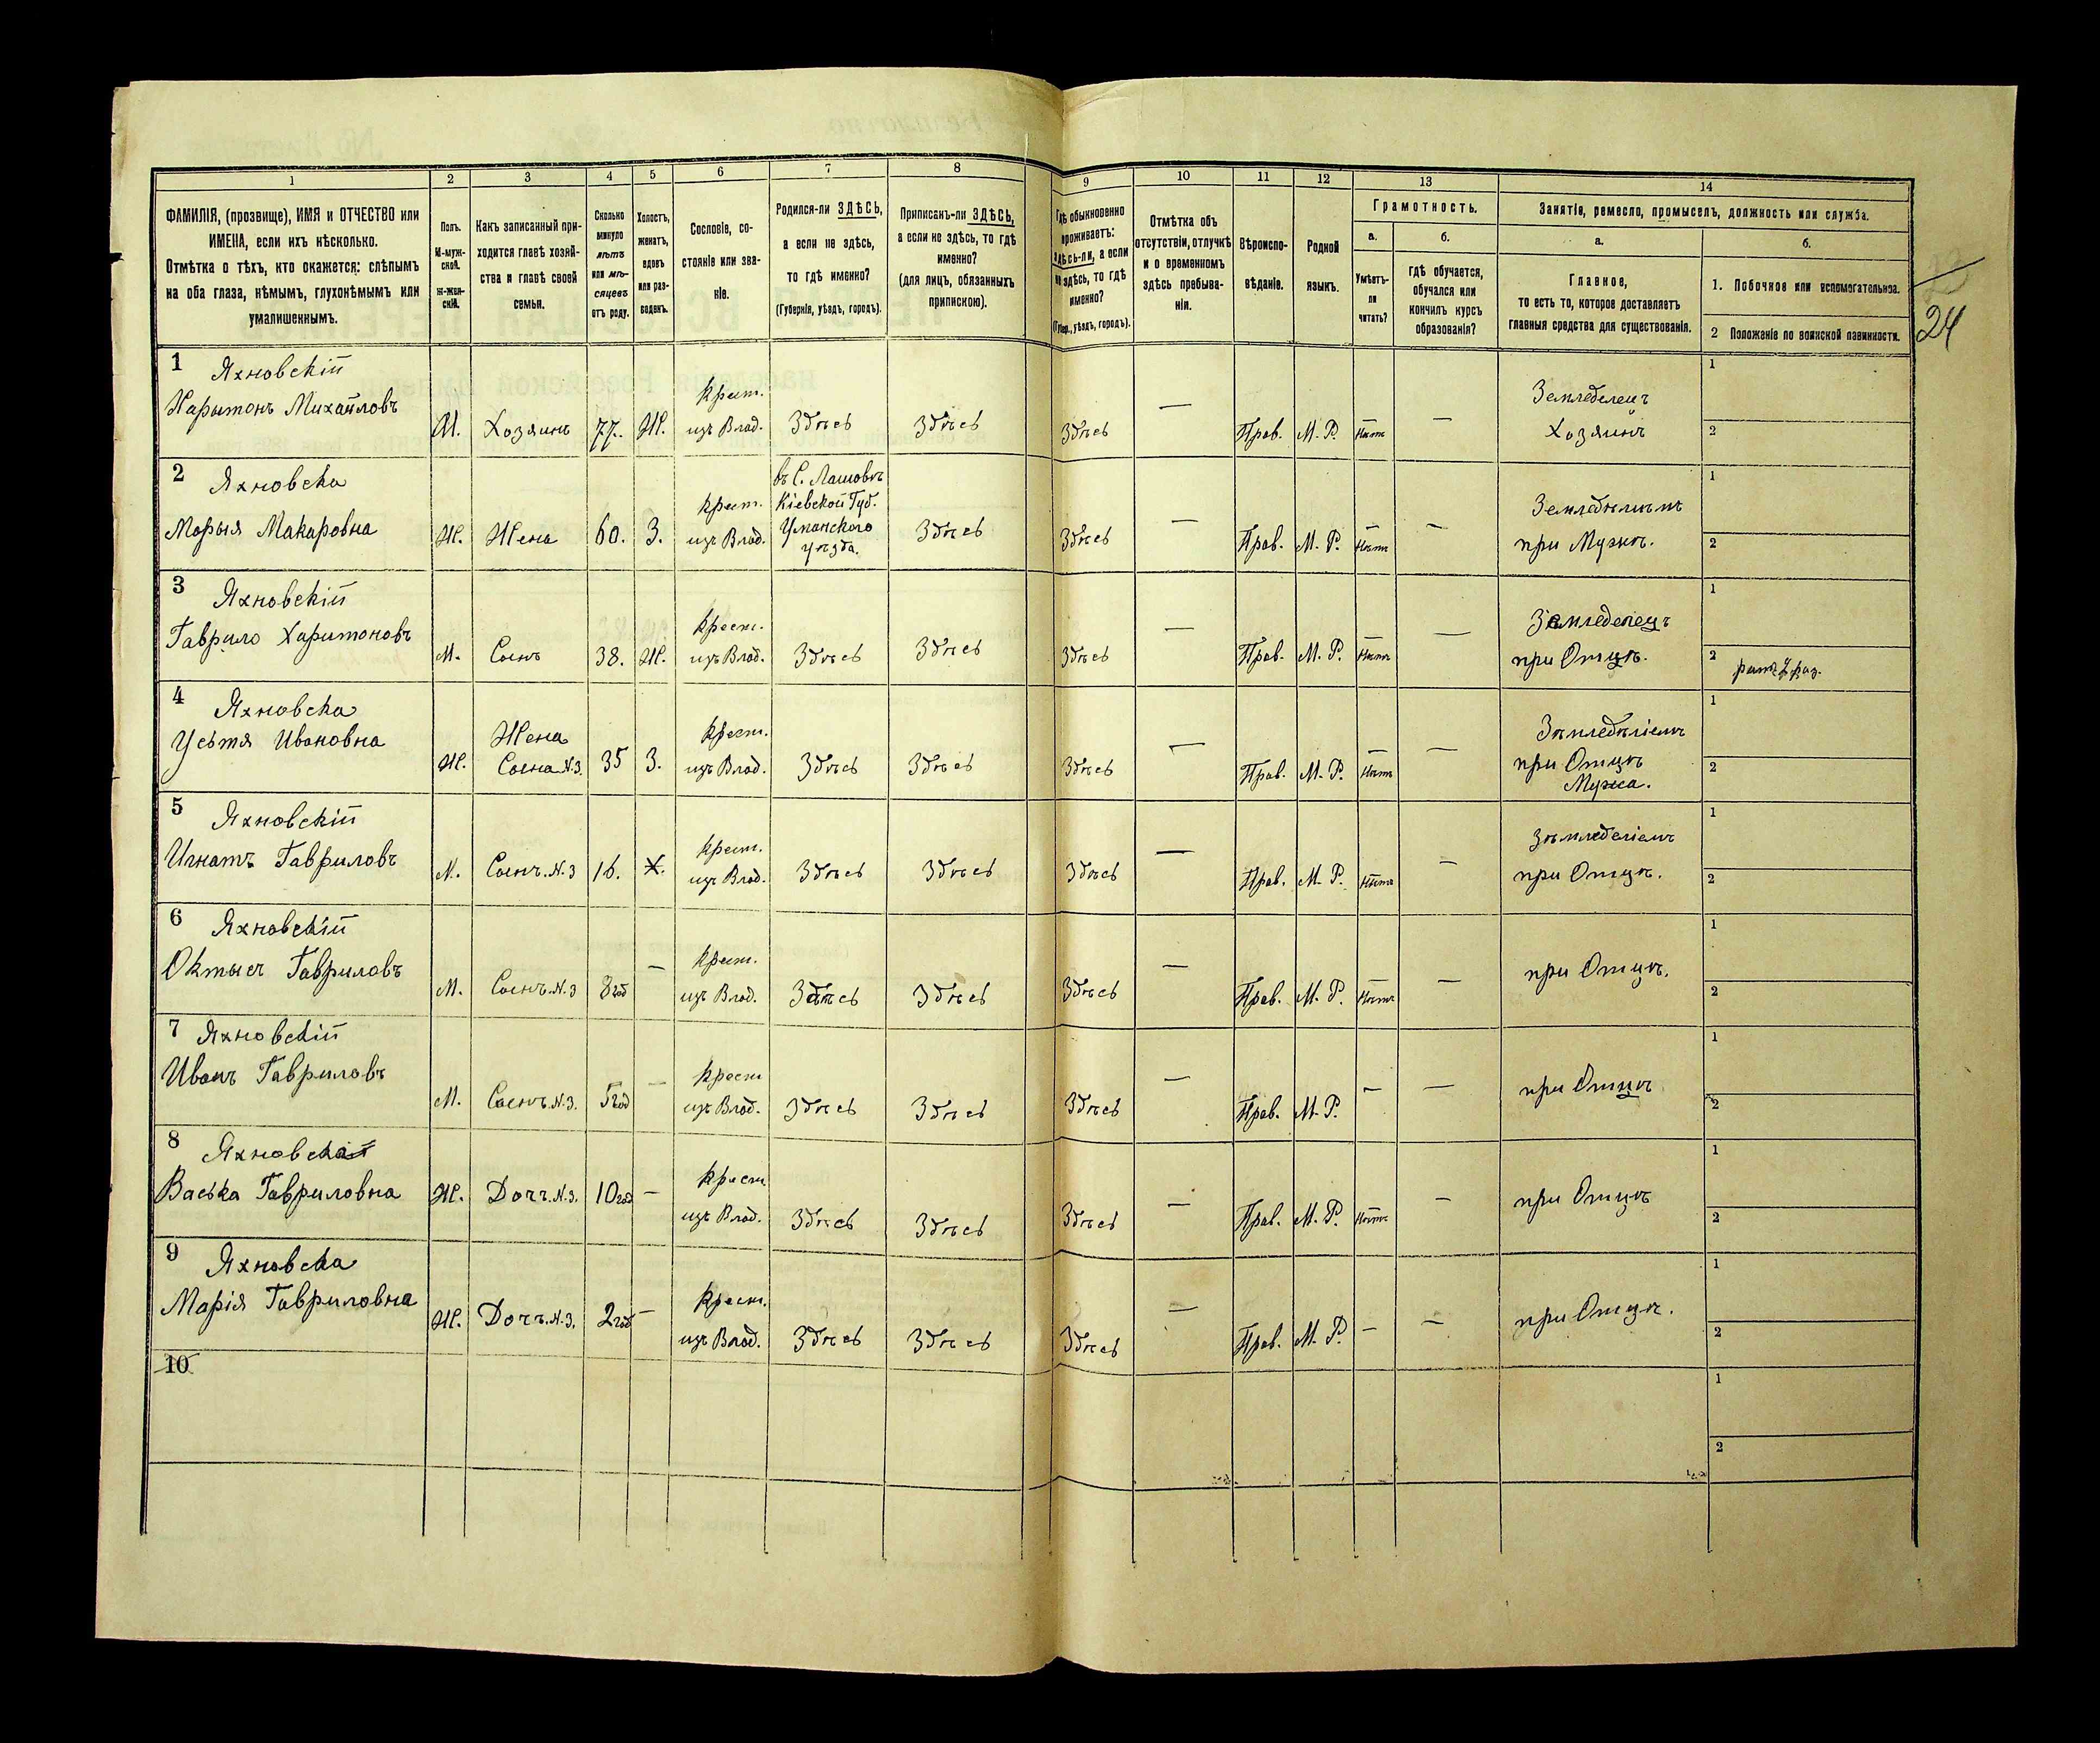 1
2
3
4
5
6
7
8
9
10
11
12
13
14
ФАМИЛІЯ, (прозвище), ИМЯ и ОТЧЕСТВО или
ИМЕНА, если ихъ нѣсколько.
Отмѣтка о тѣхъ, кто окажется: слѣпымъ
на оба глаза, нѣмымъ, глухонѣмымъ или
умалишеннымъ.
Полъ.
М-муж-
ской.
ж-жен-
скій.
Какъ записанный при-
ходится главѣ хозяй-
ства и главѣ своей
семьи.
Сколько
минуло
лѣтъ
или мѣ-
сяцевъ
отъ роду.
Холостъ,
женатъ,
вдовъ
или раз-
веденъ.
Сословіе, со-
стояніе или зва-
ніе.
Родился-ли ЗДѢСЬ,
а если не здѣсь,
то гдѣ именно?
(Губернія, уѣздъ, городъ).
Приписанъ-ли ЗДѢСЬ,
а если не здѣсь, то гдѣ
именно?
(для лицъ, обязанныхъ
припискою).
Гдѣ обыкновенно
проживаетъ:
здѣсь-ли, а если
не здѣсь, то гдѣ
именно?
(Губер., уѣздъ, городъ).
Отмѣтка объ
отсутствіи, отлучкѣ
и о временномъ
здѣсь пребыва-
ніи.
Вѣроиспо-
вѣданіе.
Родной
языкъ.
Грамотность.
а.
Умѣетъ-
ли
читать?
б.
Гдѣ обучается,
обучался или
кончилъ курсъ
образованія?
Занятіе, ремесло, промыселъ, должность или служба.
а.
Главное,
то есть то, которое доставляетъ
главныя средства для существованія.
б.
1. Побочное или вспомогательное.
2 Положеніе по воинской павинности.
24
1 Яхновскій
Харытонъ Михайловъ
М. Хозяинъ 77. Ж. Крест. изъ Влад. Здѣсь Здѣсь Здѣсь — Прав. М. Р. Нѣтъ — Земледелецъ Хозяинъ
1
2
2 Яхновска
Марыя Макаровна
Ж. Жена 60. З. Крест. изъ Влад.
въ С.
Кіевской Губ.
Уманского
уѣзда.
Здѣсь Здѣсь — Прав. М. Р. Нѣтъ —
при Мужѣ.
1
2
3 Яхновскій
Гаврило Харитоновъ
М. Сынъ 38. Ж. Крест. изъ Влад. Здѣсь Здѣсь Здѣсь — Прав. М. Р. Нѣтъ — Земледелецъ
при Отцѣ.
1
2
4 Яхновска
Устя Ивановна
Ж. Жена Сына N.3. 35 З. Крест. изъ Влад. Здѣсь Здѣсь Здѣсь — Прав. М. Р. Нѣтъ — Зѣмледѣліемъ
при Отцѣ
Мужа.
1
2
5 Яхновскій
Игнатъ Гавриловъ
М. Сынъ.N.3 16. Х. Крест. изъ Влад. Здѣсь Здѣсь Здѣсь — Прав. М. Р. Нѣтъ — Зѣмледеліемъ
при Отцѣ.
1
2
6 Яхновскій
Гавриловъ
М. Сынъ.N.3 8 год — Крест. изъ Влад. Здѣсь Здѣсь Здѣсь — Прав. М. Р. Нѣтъ — при Отцѣ.
1
2
7 Яхновскій
Иванъ Гавриловъ
М. Сынъ.N.3. 5 год — Крест изъ Влад. Здѣсь Здѣсь Здѣсь — Прав. М. Р. — — при Отцѣ
1
2
8 Яхновска
Васька Гавриловна
Ж. Доч.N.3. 10 год — Крест изъ Влад. Здѣсь Здѣсь Здѣсь — Прав. М. Р. Нѣтъ — при Отцѣ
1
2
9 Яхновска
Марія Гавриловна
Ж. Доч.N.3. 2 год — Крест. изъ Влад. Здѣсь Здѣсь Здѣсь — Прав. М. Р. — — при Отцѣ.
1
2
10
1
2